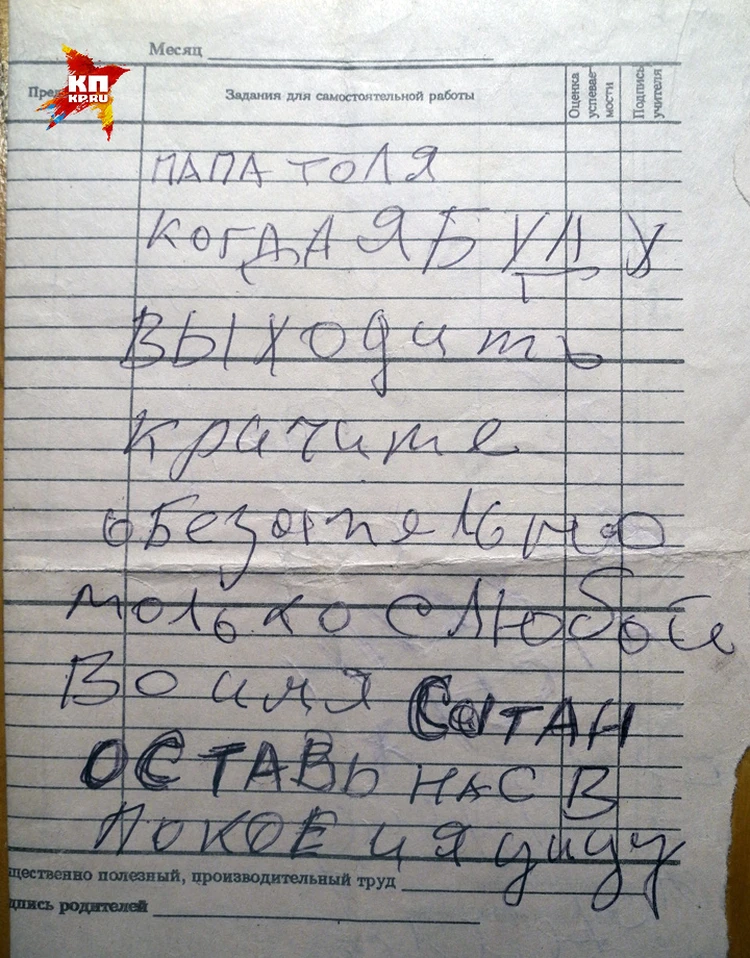 Месяц
КП
KP.RU
Пред
Задания для самостоятельной работы
Оценка успевае-мости
Подпись учителя
ПАПА ТОЛЯ
КОГДА Я БУДУ
ВЫХОдить
кричите
обезательно
только с Любой
Во имя СЫТАН
ОСТАВЬ НАС В
ПОКОЕ и я уйду
щественно полезный, производительный труд
дпись родителей